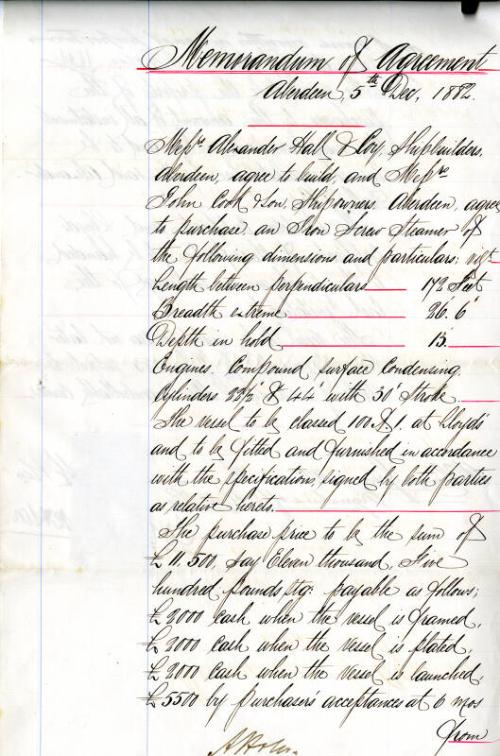 Memorandum of Agreement
Aberdeen, 5th Dec, 1882.
Messrs Alexander Hall & Coy, Shipbuilders,
Aberdeen, agree to build, and Messrs
John Cook & Son, Shipowners, Aberdeen, agree
to purchase an Iron Screw Steamer of
the following dimensions and particulars; vizt
Length between perpendiculars 172 feet
Breadth extreme 26' 6"
Depth in hold 13'
Engines. Compound surface Condensing.
Cylinders & 44" with 30" Stroke.
The vessel to be classed 100 A 1. at Lloyds'
and to be fitted and furnished in accordance
with the specifications, signed by both parties
as relative hereto.
The purchase price to be the sum of
£11,500, say Eleven thousand, Five
hundred pounds, stg: payable as follows;
£2000 cash when the vessel is framed,
£2000 cash when the vessel is plated,
£2000 cash when the vessel is launched,
£5500 by purchasers' acceptances at 6 mos
from